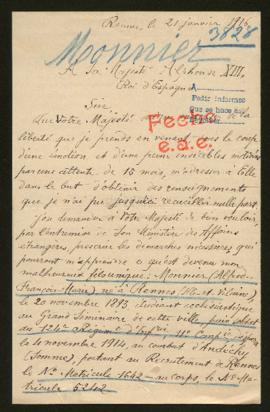 Rennes, le 21 janvier 1916
3828
Monnier
A Sa Majesté Alphonse XIII,
Roi d'Espagne
A
Pedir informes
Sire,
Que Votre Majesté de la
liberté que je prends en venant, sous le coup
d'une émotion et d'une peine indicibles
par une attente de 15 mois, m'adresser à Elle
dans le but d'obtenir des renseignements
que je n'ai pu jusqu'ici recueillir nulle part.
Fecho
e.a.e.
J'ose demander à Votre Majesté de bien vouloir,
par l'entremise de Son Ministère des Affaires
étrangères, prescrire les démarches nécessaires qui
pourront m'apprendre ce qu'est devenu mon
malheureux fils unique: Monnier (Alfred-
François-Marie) né à Rennes (Ille-et-Vilaine)
le 20 novembre 1893, étudiant ecclésiastique
au Grand Séminaire de cette ville, puis soldat
au Régiment d'Infrie 11e Compie,
le 4 novembre 1914, au combat d'Andechy
(Somme), portant au Recrutement de Rennes
le No Matricule 1642 au corps, le No Ma-
tricule 5242